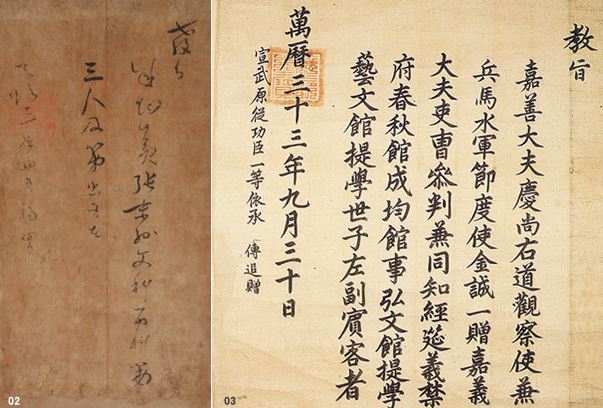 教旨
嘉善大夫慶尚右道觀察使兼
兵馬水軍節度使金誠一贈嘉義
大夫吏曹叅判兼同知經筵義禁
府春秋館成均館事弘文館提學
藝文館提學世子左副賓客者
萬曆三十三年九月三十日
宣武原從功臣一等依承 傳追贈
03
教旨
張末孫文科丙科第
三人及第出身者
02